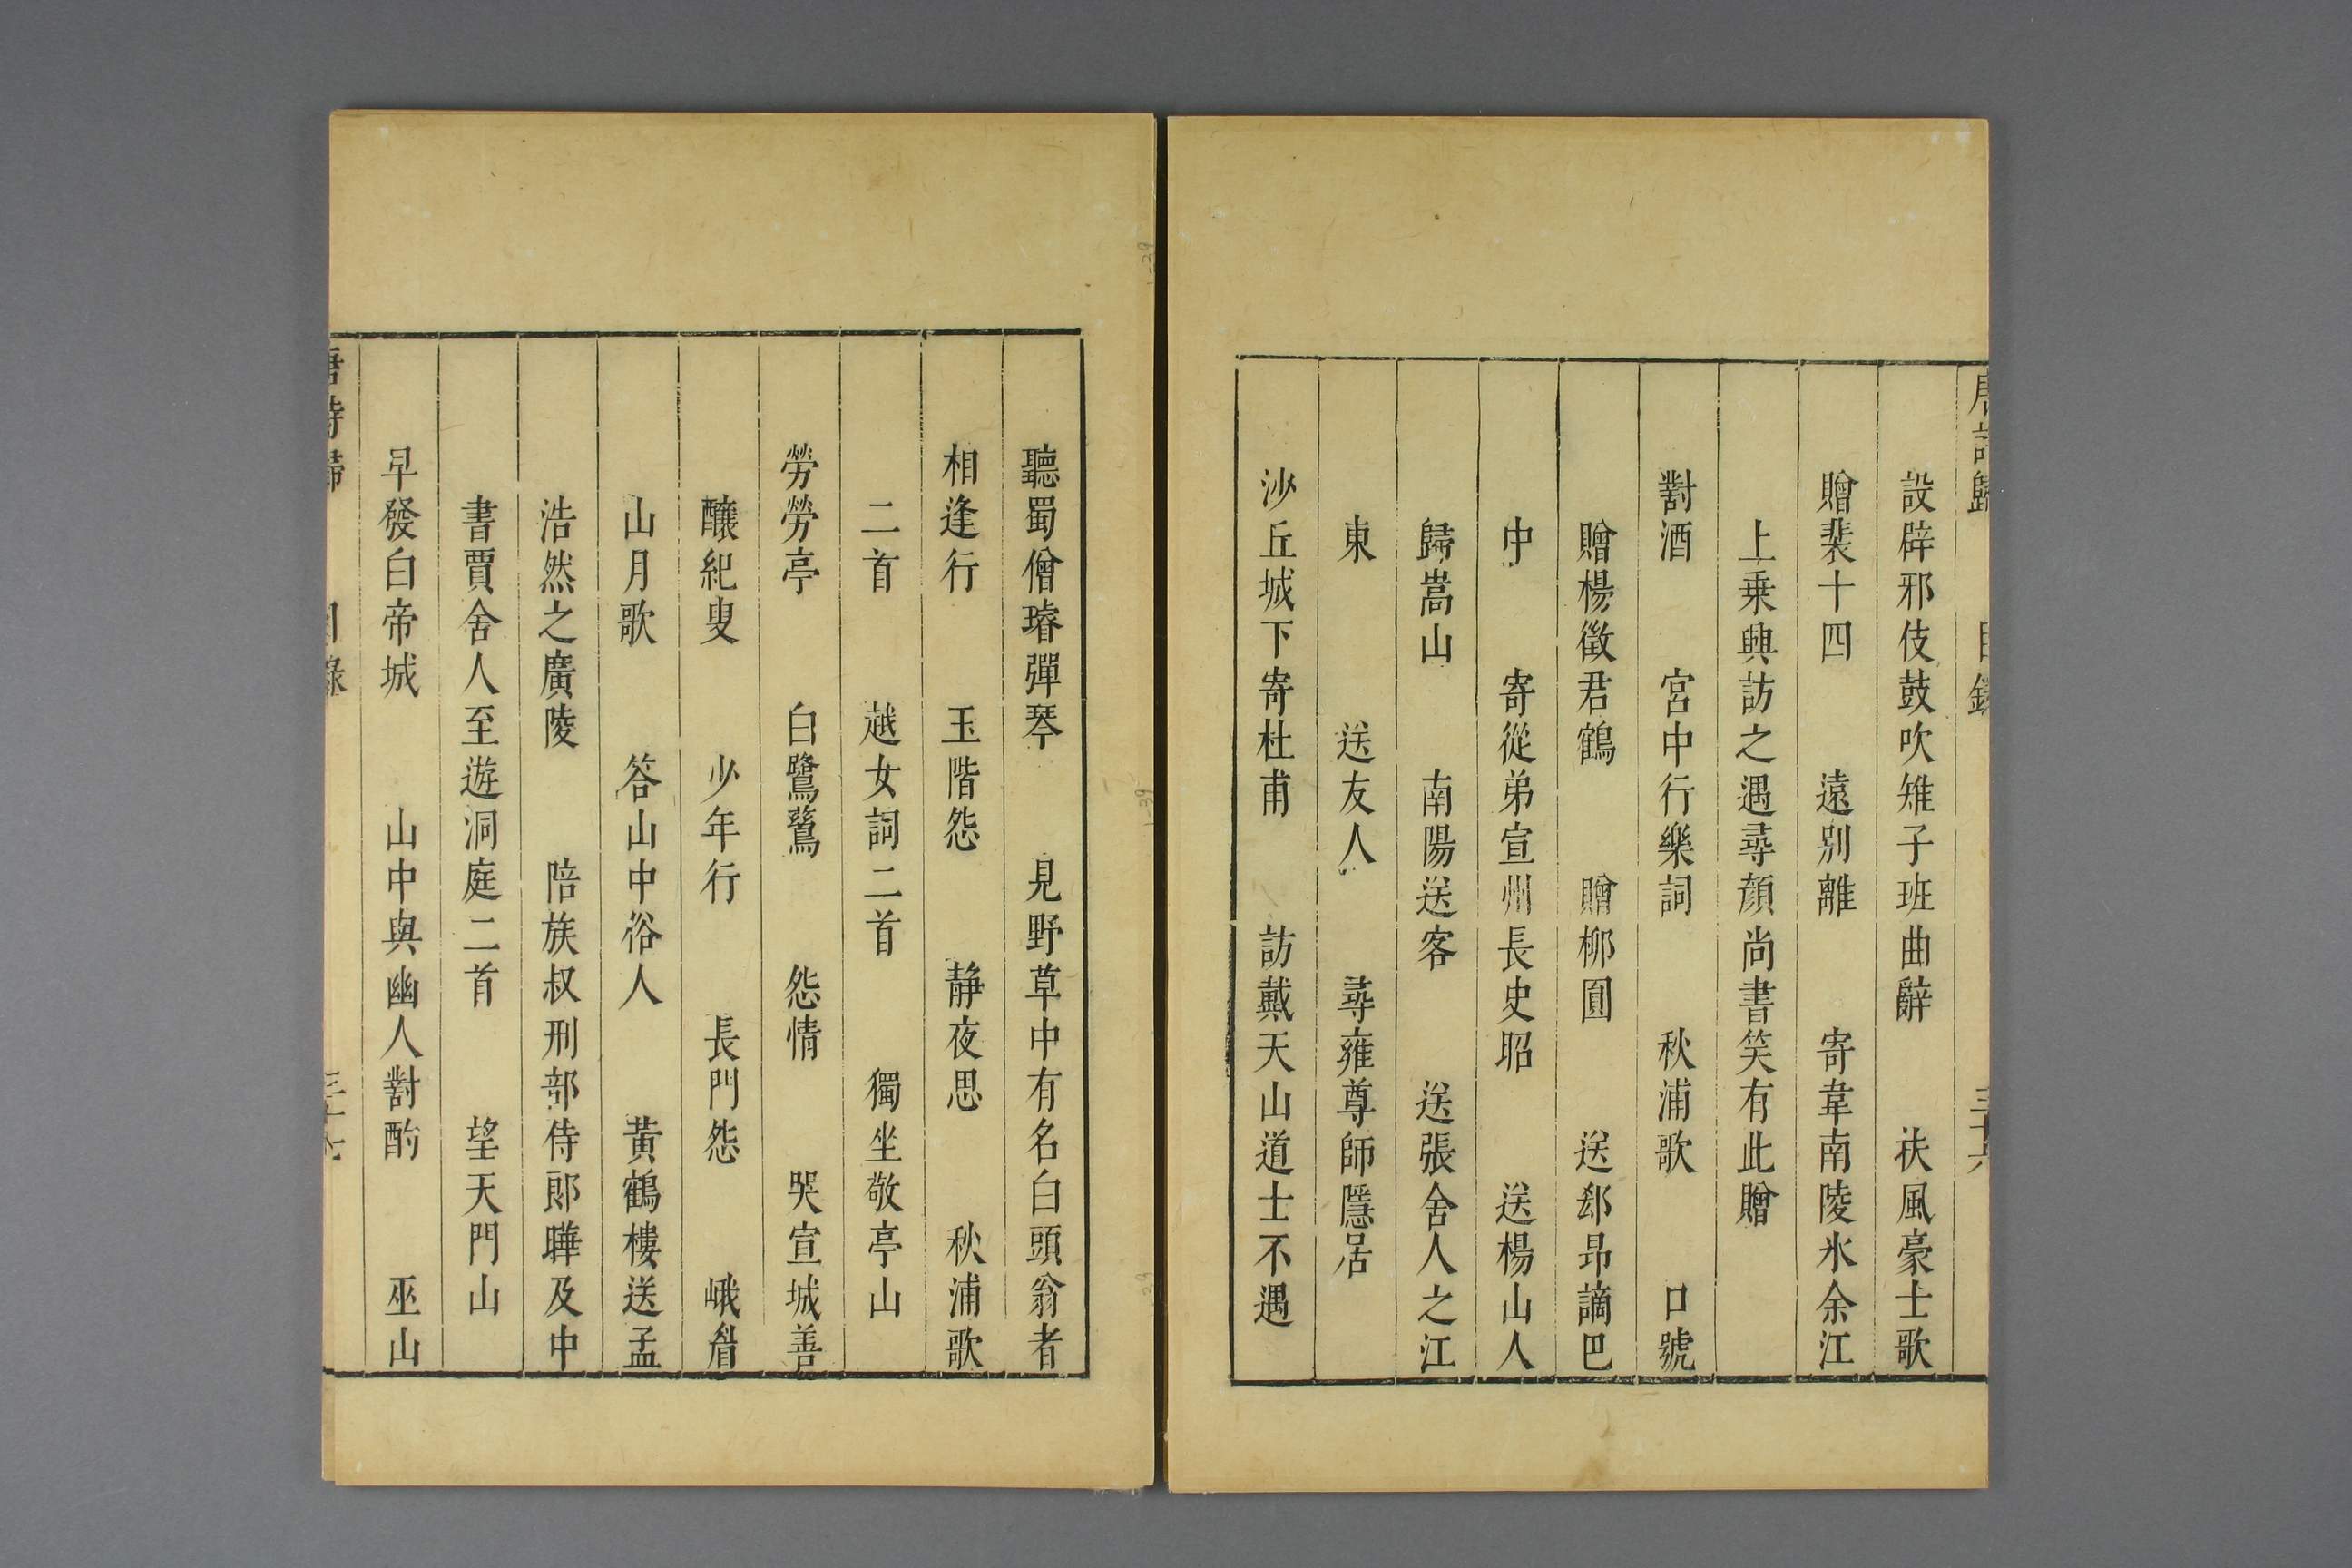 唐詩歸 目錄 三十六
設辟邪伎鼓吹雉子班曲辭 扶風豪士歌
贈裴十四 遠別離 寄韋南陵氷余江
上乗興訪之遇尋顏尚書笑有此贈
對酒 宮中行樂詞 秋浦歌 口號
贈楊徵君鶴 贈柳圓 送郄昂謫巴
中 寄從弟宣州長史昭 送楊山人
歸嵩山 南陽送客 送張舍人之江
東 送友人 尋雍尊師隱居
沙丘城下寄杜甫 訪戴天山道士不遇
聽蜀僧璿彈琴 見野草中有名白頭翁者
相逢行 玉階怨 靜夜思 秋浦歌
二首 越女詞二首 獨坐敬亭山
勞勞亭 白鷺鷥 怨情 哭宣城善
釀紀叟 少年行 長門怨 峨眉
山月歌 答山中俗人 黃鶴樓送孟
浩然之廣陵 陪族叔刑部侍郎曄及中
書賈舍人至遊洞庭二首 望天門山
早發白帝城 山中與幽人對酌 巫山
唐詩歸 目錄 三十七